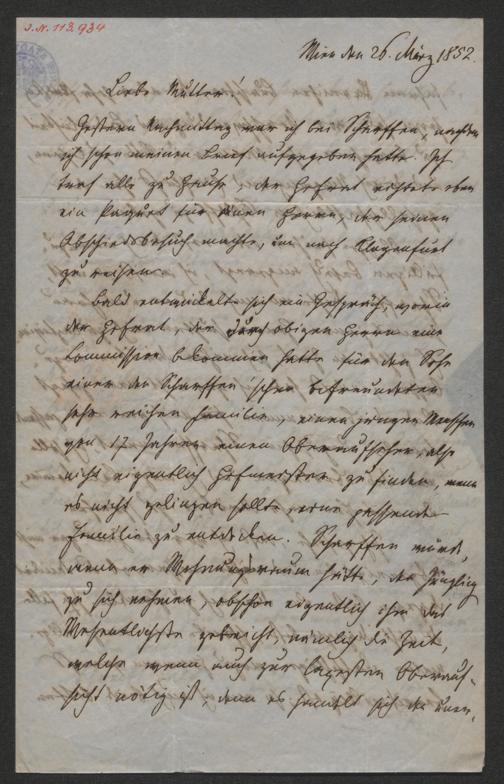 J. N. 113.934
Wien den 26. März 1852.
Liebe Mutter!
Gestern Nachmittag war ich bei Scherffen, nachdem
ich schon meinen Brief aufgegeben hatte. Ich
traf alle zu Hause, der Hofrat richtete eben
ein Paquet für einen Herrn, der seinen
Abschiedsbesuch machte, um nach Klagenfurt
zu reisen.
Bald entwickelte sich ein Gespräch, worin
der Hofrat, der durch obigen Herrn eine
Commission bekommen hatte für den Sohn
einer den Scharffen'schen befreundeten
sehr reichen Familie, einen jungen Menschen
von 17 Jahren einen Oberaufseher, also
nicht eigentlich Hofmeister zu finden, wenn
es nicht gelingen sollte, eine passende
Familie zu entdecken. Scharffen würde,
wenn er Wohnungsraum hätte, den Jüngling
zu sich nehmen, obschon eigentlich ihm das
Wesentlichste gebricht, nämlich die Zeit,
welche wenn auch zur Oberauf-
sicht nötig ist, denn es handelt sich da